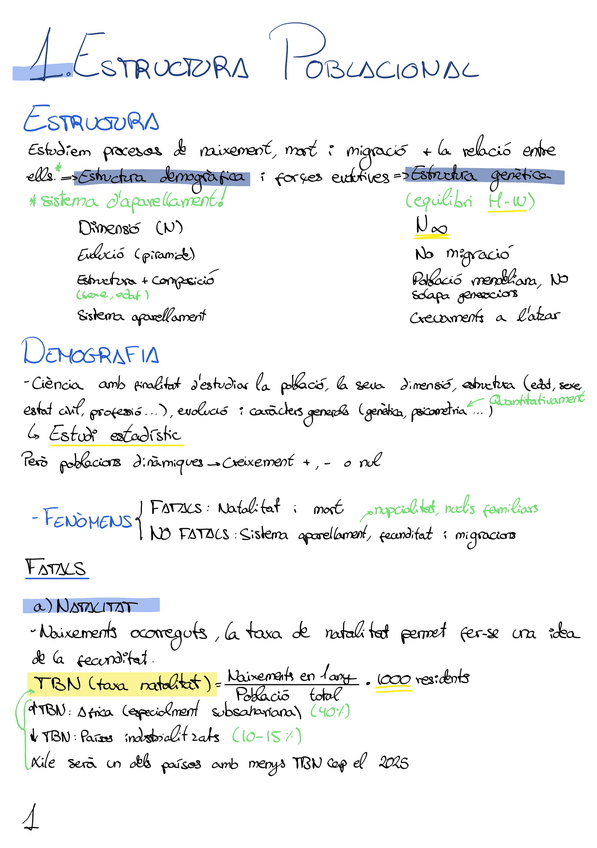 1. ESTRUCTURA POBLACIONAL
ESTRUCTURA
Estudiem procesos de naixement, mort i migració + la relació entre
ells.* => Estructura demogràfica i forçes evolutives => Estructura genètica
* sistema d'aparellament! (equilibri H-W)
Dimensió (N) N∞
Evolució (piramide) No migració
Estructura + Composició Població mendeliana, NO
(sexe, edat) solapa generacions
Sistema aparellament Creuaments a l'atzar
DEMOGRAFIA
- Ciència amb finalitat d'estudiar la població, la seva dimensió, estructura (edad, sexe,
estat civil, professió...), evolució i caràcters generals (genètica, psicometria ...) ← Quantitativament
↳ Estudi estadístic
Però poblacions dinàmiques → Creixement +, - o nul
- FENÒMENS { FATALS: Natalitat i mort → nupcialitat, nuclis familiars
NO FATALS: Sistema aparellament, fecunditat i migracions
FATALS
a) NATALITAT
- Naixements ocorreguts, la taxa de natalitat permet fer-se una idea
de la fecunditat.
TBN (taxa natalitat) = Naixements en l'any / Població total · 1000 residents
↑TBN: Africa (especialment subsahariana) (40%)
↓ TBN: Països industrialitzats (10-15%)
Xile serà un dels països amb menys TBN cap el 2025
1